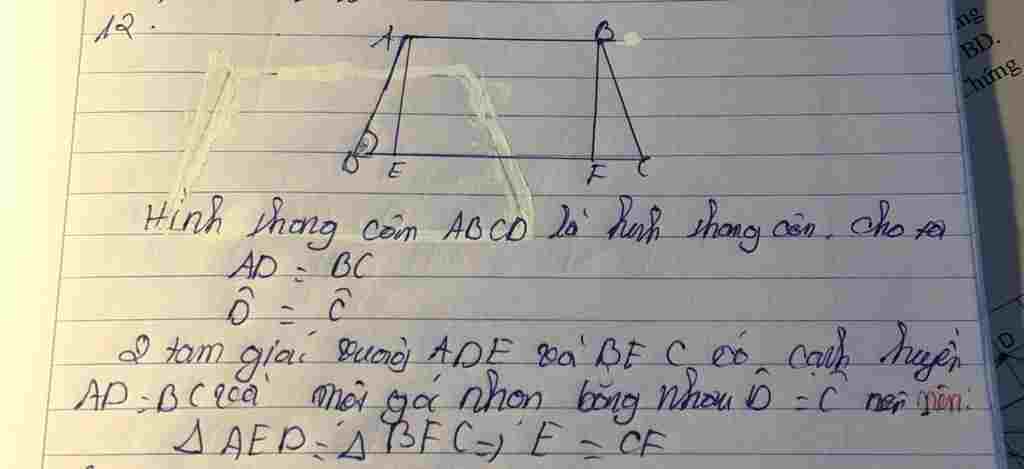 12.
A B
D E F C
Hình thang cân ABCD là hình thang cân. Cho ta
AD = BC
D̂ = Ĉ
2 tam giác vuông ADE và BFC có cạnh huyền
AD = BC và một góc nhọn bằng nhau D̂ = Ĉ nên
Δ AED = Δ BFC => E = CF
ng
BD.
Chứng